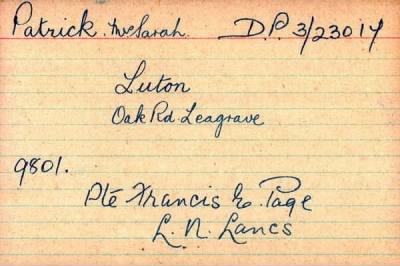 Patrick. Mrs Sarah. D.P. 3/23014
Luton
Oak Rd Leagrave
9801.
Pte Francis E. Page
L. N. Lancs